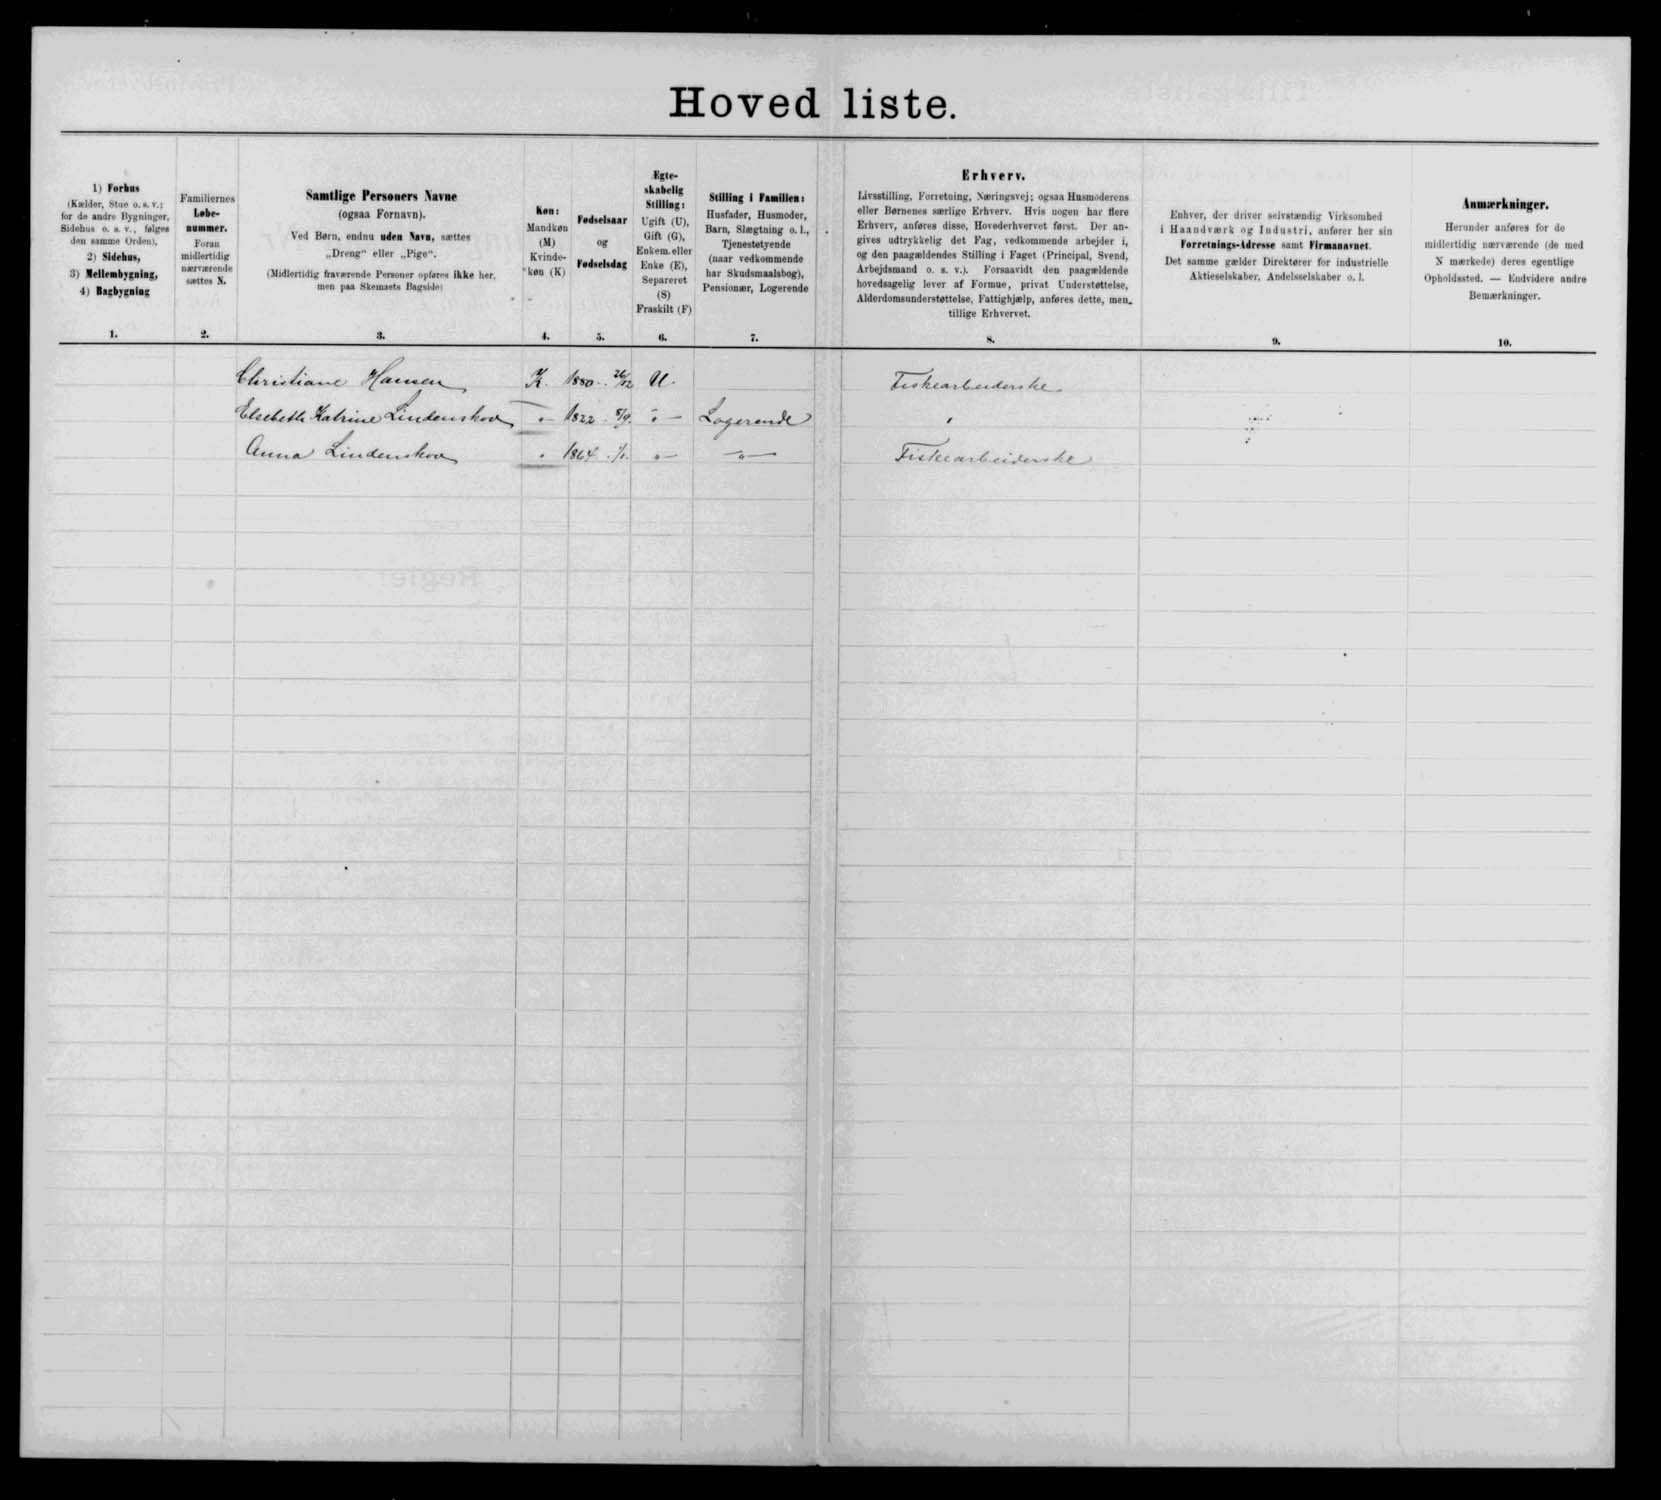 Hoved liste.
1) Forhus
(Kælder, Stue o. s. v.;
for de andre Bygninger,
Sidehus o. s. v., følges
den samme Orden),
2) Sidehus,
3) Mellembygning,
4) Bagbygning
1.
Familiernes
Løbe-
nummer.
Foran
midlertidig
nærværende
sættes N.
2.
Samtlige Personers Navne
(ogsaa Fornavn).
Ved Børn, endnu uden Navn, sættes
„Dreng“ eller „Pige“.
(Midlertidig fraværende Personer opføres ikke her,
men paa Skemaets Bagside)
3.
Køn:
Mandkøn
(M)
Kvinde-
køn (K)
4.
Fødselsaar
og
Fødselsdag
5.
Ægte-
skabelig
Stilling:
Ugift (U),
Gift (G),
Enkem. eller
Enke (E),
Separeret
(S)
Fraskilt (F)
6.
Stilling i Familien:
Husfader, Husmoder,
Barn, Slægtning o. l.,
Tjenestetyende
(naar vedkommende
har Skudsmaalsbog),
Pensionær, Logerende
7.
Erhverv.
Livsstilling, Forretning, Næringsvej; ogsaa Husmoderens
eller Børnenes særlige Erhverv. Hvis nogen har flere
Erhverv, anføres disse, Hovederhvervet først. Der an-
gives udtrykkelig det Fag, vedkommende arbejder i,
og den paagældendes Stilling i Faget (Principal, Svend,
Arbejdsmand o. s. v.). Forsaavidt den paagældende
hovedsagelig lever af Formue, privat Understøttelse,
Alderdomsunderstøttelse, Fattighjælp, anføres dette, men
tillige Erhvervet.
8.
Enhver, der driver selvstændig Virksomhed
i Haandværk og Industri, anfører her sin
Forretnings-Adresse samt Firmanavnet.
Det samme gælder Direktører for industrielle
Aktieselskaber, Andelsselskaber o. l.
9.
Anmærkninger.
Herunder anføres for de
midlertidig nærværende (de med
N mærkede) deres egentlige
Opholdssted. — Endvidere andre
Bemærkninger.
10.
Christiane Hansen K. 1880 26/12 U. Fiskearbeiderske
Elsebeth Katrine Lindenskov " 1822 5/9 " Logerende "
Anna Lindenskov " 1864 1/1 " " Fiskearbeiderske